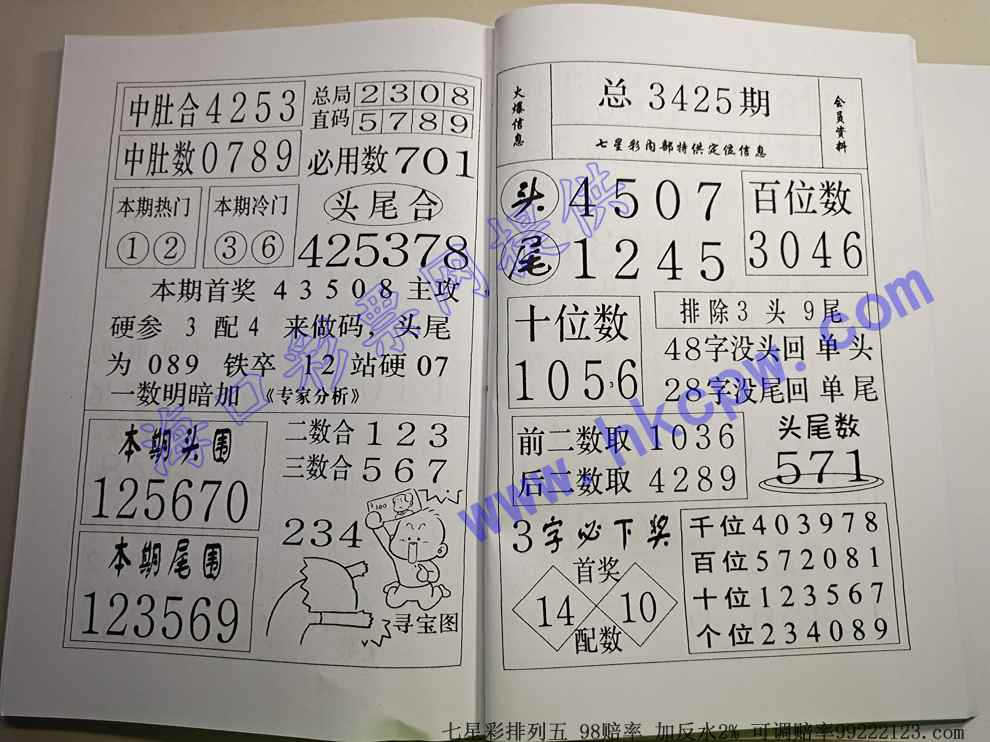 中肚合4253
总局 2308
直码 5789
中肚数0789
必用数701
本期热门
① ②
本期冷门
③ ⑥
头尾合
425378
本期首奖 43508 主攻
硬参 3 配4 来做码，头尾
为 089 铁卒 12 站硬 07
一数明暗加 《专家分析》
本期头围
125670
二数合 123
三数合 567
本期尾围
123569
234
100
寻宝图
火爆信息
总 3425期
七星彩内部特供定位信息
会员资料
头 4507
尾 1245
百位数
3046
十位数
1056
3
排除3 头 9尾
48字没头回 单 头
28字没尾回 单 尾
前二数取 1036
后二数取 4289
头尾数
571
3字必下奖
首奖
14 10
配数
千位403978
百位572081
十位123567
个位234089
海口彩票网提供
www.hkcpw.com
七星彩排列五 98赔率 加反水2% 可调赔率99222123.com